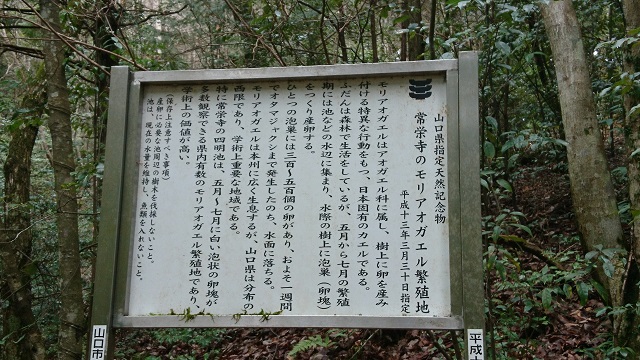 山口県指定天然記念物
常栄寺のモリアオガエル繁殖地
平成十三年三月三十日指定
モリアオガエルはアオガエル科に属し、樹上に卵を産み
付ける特異な行動をもつ、日本固有のカエルである。
ふだんは森林で生活をしているが、五月から七月の繁殖
期には池などの水辺に集まり、水際の樹上に泡巣（卵塊）
をつくり産卵する。
ひとつの泡巣には三百～五百個の卵があり、およそ一週間
でオタマジャクシまで発生したのち、水面に落ちる。
モリアオガエルは本州に広く生息するが、山口県は分布の
西限であり、学術上重要な地域である。
特に常栄寺の四明池は、五月～七月に白い泡状の卵塊が
多数観察できる県内有数のモリアオガエル繁殖地であり、
学術上の価値が高い。
（保存上注意すべき事項）
産卵に必要な池周辺の樹木を伐採しないこと。
池は、現在の水量を維持し、魚類を入れないこと。
山口市
平成